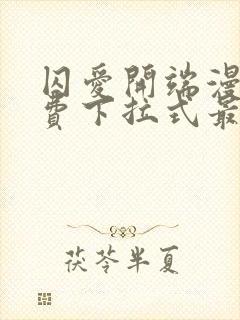 囚愛開端漫
費下拉式最
茯苓半夏